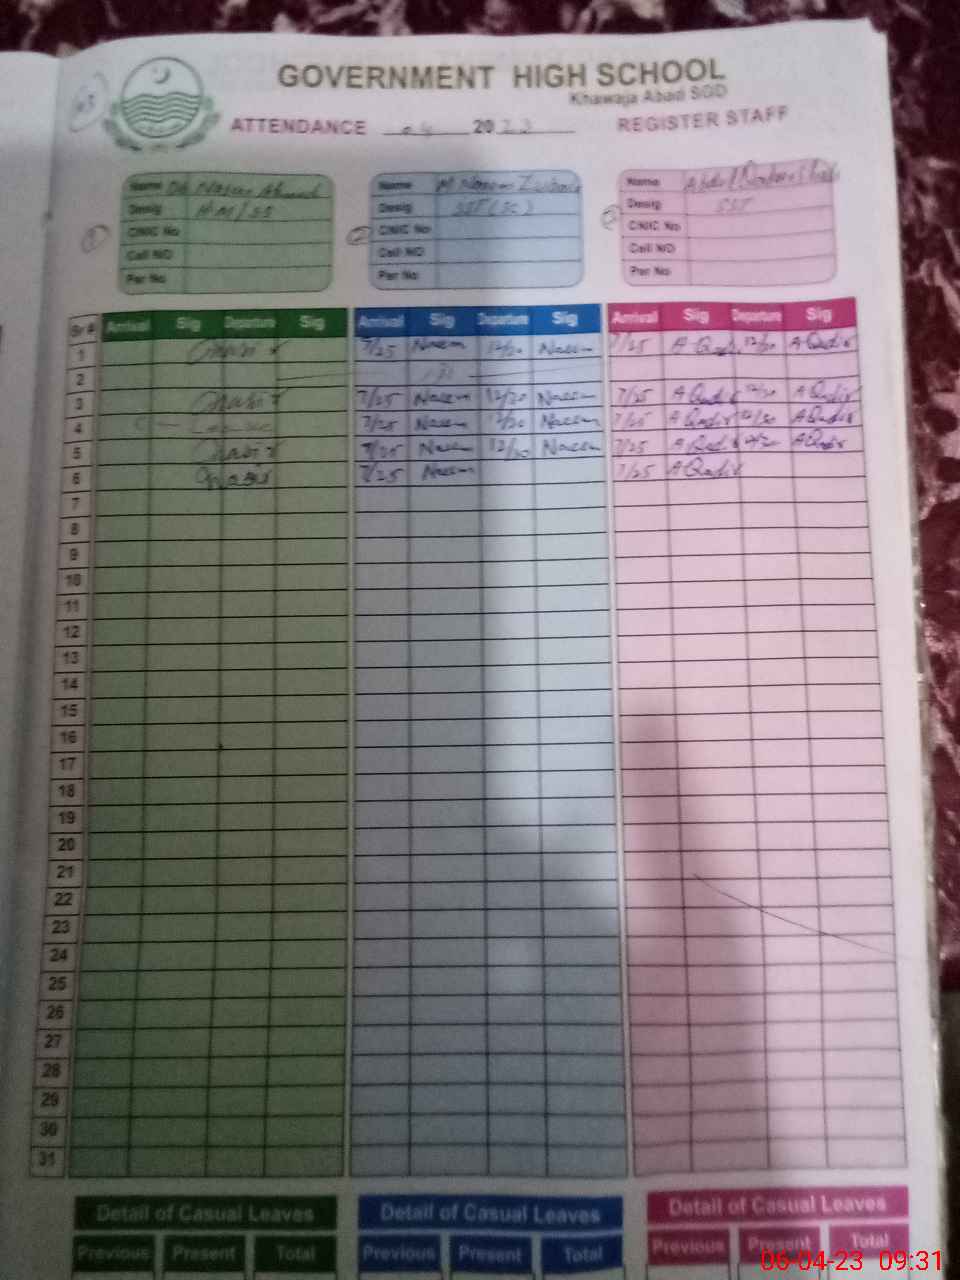 GOVERNMENT HIGH SCHOOL
Khawaja Abad SGD
ATTENDANCE 04 2023 REGISTER STAFF
Name Name Name
Desig HM/SS Desig SST (SC) Desig SST
CNIC No CNIC No CNIC No
Cell NO Cell NO Cell NO
Per No Per No Per No
Sr # Arrival Sig Departure Sig Arrival Sig Departure Sig Arrival Sig Departure Sig
1 7/25 Naeem 12/30 Naeem 7/25 A Qadir 12/30 A Qadir
2
3 7/25 Naeem 12/30 Naeem 7/25 A Qadir 12/30 A Qadir
4 7/25 Naeem 12/30 Naeem 7/25 A Qadir 12/30 A Qadir
5 7/25 Naeem 12/30 Naeem 7/25 A Qadir 12/30 A Qadir
6 7/25 Naeem 7/25 A Qadir
7
8
9
10
11
12
13
14
15
16
17
18
19
20
21
22
23
24
25
26
27
28
29
30
31
Detail of Casual Leaves Detail of Casual Leaves Detail of Casual Leaves
Previous Present Total Previous Present Total Previous Present Total
06-04-23 09:31